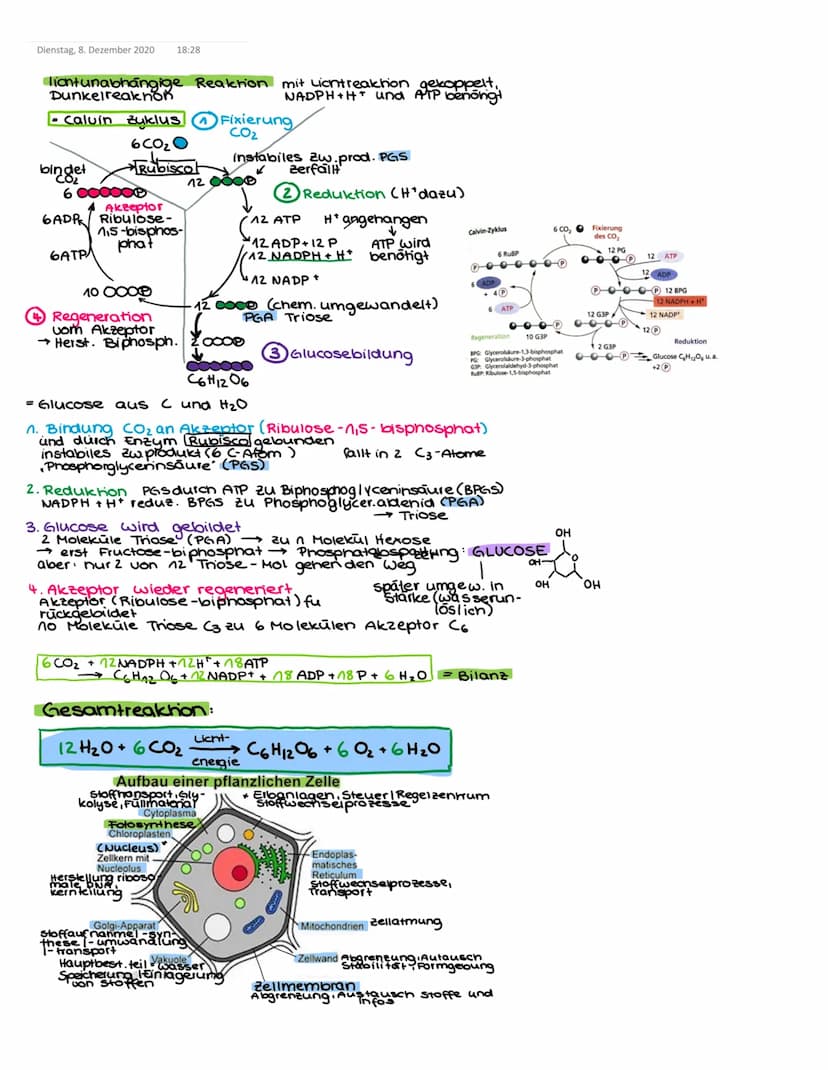 Dienstag, 8. Dezember 2020 18:28
lichtunabhängige Reaktion mit Lichtreaktion gekoppelt,
Dunkelreaktion NADPH+H⁺ und ATP benötigt
• Calvin Zyklus ① Fixierung
CO₂
6CO₂
bindet
CO₂
Rubisco
instabiles zw.prod. PGS
zerfällt
6
12
② Reduktion (H⁺dazu)
Akzeptor
Ribulose-
1,5-bisphos-
phat
6ADP
6ATP
12 ATP H⁺ angehangen
12 ADP+12 P ATP wird
12 NADPH+H⁺ benötigt
12 NADP⁺
10
12 (chem. umgewandelt)
PGA Triose
④ Regeneration
vom Akzeptor
→ Herst. Biphosph.
2
③ Glucosebildung
C₆H₁₂O₆
= Glucose aus C und H₂O
Calvin-Zyklus
6 CO₂ Fixierung
des CO₂
12 PG
6 RuBP
12 ATP
12 ADP
6 ADP
+ 4 P
12 BPG
12 NADPH + H⁺
6 ATP
12 G3P
12 NADP⁺
12 P
Regeneration 10 G3P
2 G3P
Reduktion
BPG: Glycerolsäure-1,3-bisphosphat
PG: Glycerolsäure-3-phosphat
G3P: Glycerolaldehyd-3-phosphat
RuBP: Ribulose-1,5-bisphosphat
Glucose C₆H₁₂O₆ u. a.
+2 P
1. Bindung CO₂ an Akzeptor (Ribulose-1,5-bisphosphat)
und durch Enzym Rubisco gebunden
instabiles zw.produkt (6 C-Atom) fällt in 2 C₃-Atome
„Phosphorglycerinsäure“ (PGS)
2. Reduktion PGS durch ATP zu Biphosphoglyceninsäure (BPGS)
NADPH + H⁺ reduz. BPGS zu Phosphoglycer.aldehid (PGA)
→ Triose
3. Glucose wird gebildet
2 Moleküle Triose (PGA) → zu 1 Molekül Hexose
→ erst Fructose-biphosphat → Phosphatabspaltung: GLUCOSE
aber: nur 2 von 12 Triose-Mol gehen den Weg
OH
O
OH
OH
OH
später umgew. in
Stärke (wasserun-
löslich)
4. Akzeptor wieder regeneriert
Akzeptor (Ribulose-biphosphat) fu
rückgebildet
10 Moleküle Triose C₃ zu 6 Molekülen Akzeptor C₆
6 CO₂ + 12NADPH + 12H⁺ + 18ATP
→ C₆H₁₂O₆ + 12NADP⁺ + 18 ADP + 18 P + 6 H₂O = Bilanz
Gesamtreaktion:
12 H₂O + 6 CO₂ Licht-energie → C₆H₁₂O₆ + 6 O₂ + 6 H₂O
Aufbau einer pflanzlichen Zelle
Stofftransport, Gly-
kolyse, Füllmaterial
Cytoplasma
* Erbanlagen, Steuer/Regelzentrum
Stoffwechselprozesse
Fotosynthese
Chloroplasten
(Nucleus)*
Zellkern mit
Nucleolus
Herstellung riboso-
male DNA,
Kernteilung
Endoplas-
matisches
Reticulum
Stoffwechselprozesse,
Transport
Golgi-Apparat
Stoffaufnahme/-syn-
these/-umwandlung
/-transport
Mitochondrien Zellatmung
Vakuole
Hauptbest.teil = Wasser
Speicherung/Einlagerung
von Stoffen
Zellwand Abgrenzung, Autausch
Stabilität, Formgebung
Zellmembran
Abgrenzung, Austausch Stoffe und
Infos